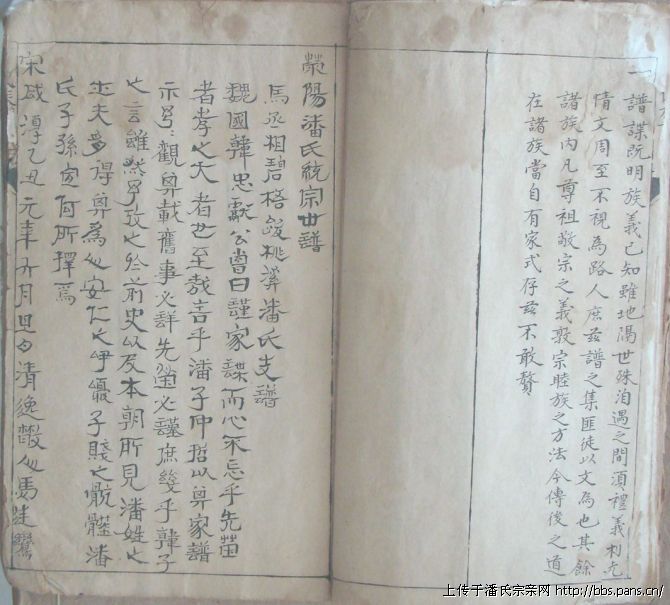 一譜諜既明族義已知雖地隔世殊洎遇之間須禮義利
情文周至不視為路人庶茲譜之集匪徒以文為也其餘
諸族内凡尊祖敬宗之義敦宗睦族之方法今傳後之道
在諸族當自有家式存茲不敢贅
滎陽潘氏統宗世譜
馬丞相碧梧跋桃潘氏支譜
魏國韓忠獻公嘗曰謹家諜而心不忘乎先茔
者孝之大者也至哉言乎潘子仲哲以其家譜
示予觀其載舊事必詳先茔必謹庶幾乎韓子
之言雖然予攷之於前史以及本朝所見潘姓之
士夫多得其為人安仁之子賤之骯髒潘
氏子孫宜何所擇焉
宋咸淳乙丑元年月旦日清逸人馬廷鸞
上传于潘氏宗亲网 http://bbs.pans.cn/